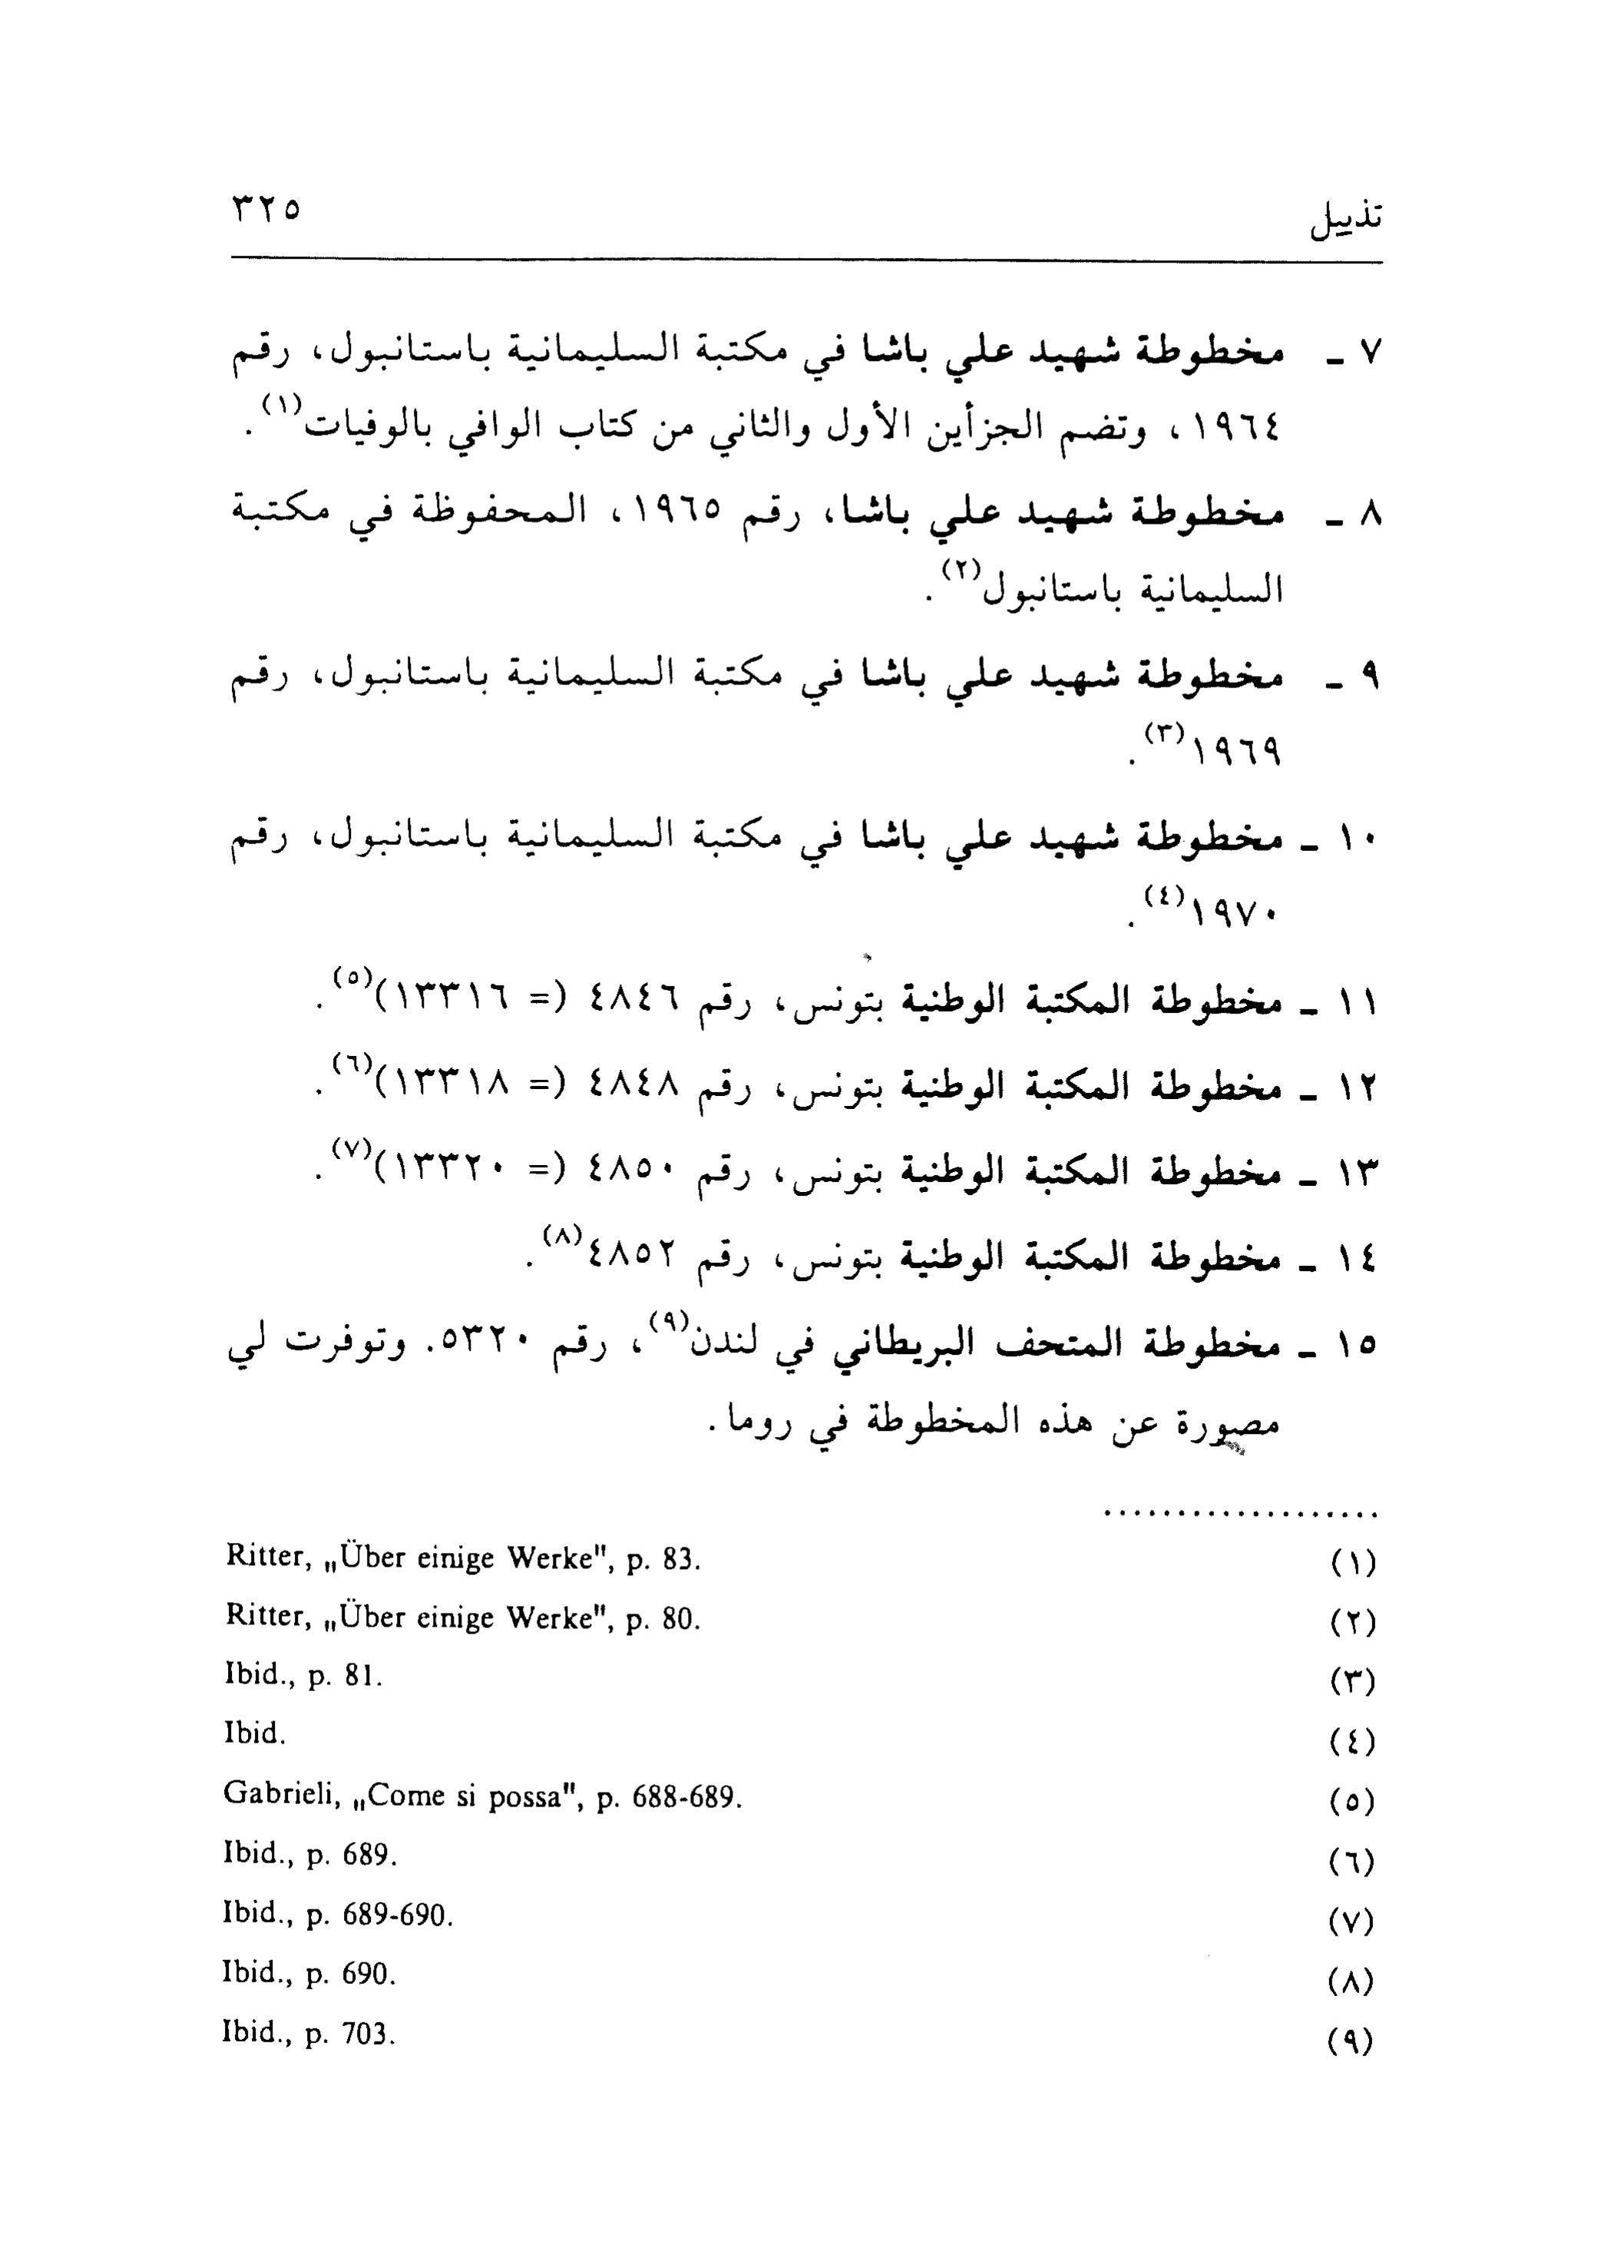 تذييل ٣٢٥
٧ ـ مخطوطة شهيد علي باشا في مكتبة السليمانية باستانبول، رقم
١٩٦٤، وتضم الجزأين الأول والثاني من كتاب الوافي بالوفيات(١).
٨ ـ مخطوطة شهيد علي باشا، رقم ١٩٦٥، المحفوظة في مكتبة
السليمانية باستانبول(٢).
٩ ـ مخطوطة شهيد علي باشا في مكتبة السليمانية باستانبول، رقم
١٩٦٩(٣).
١٠ ـ مخطوطة شهيد علي باشا في مكتبة السليمانية باستانبول، رقم
١٩٧٠(٤).
١١ ـ مخطوطة المكتبة الوطنية بتونس، رقم ٤٨٤٦ (= ١٣٣١٦)(٥).
١٢ ـ مخطوطة المكتبة الوطنية بتونس، رقم ٤٨٤٨ (= ١٣٣١٨)(٦).
١٣ ـ مخطوطة المكتبة الوطنية بتونس، رقم ٤٨٥٠ (= ١٣٣٢٠)(٧).
١٤ ـ مخطوطة المكتبة الوطنية بتونس، رقم ٤٨٥٢(٨).
١٥ ـ مخطوطة المتحف البريطاني في لندن(٩)، رقم ٥٣٢٠. وتوفرت لي
مصورة عن هذه المخطوطة في روما.
...................
(١) Ritter, „Über einige Werke", p. 83.
(٢) Ritter, „Über einige Werke", p. 80.
(٣) Ibid., p. 81.
(٤) Ibid.
(٥) Gabrieli, „Come si possa", p. 688-689.
(٦) Ibid., p. 689.
(٧) Ibid., p. 689-690.
(٨) Ibid., p. 690.
(٩) Ibid., p. 703.